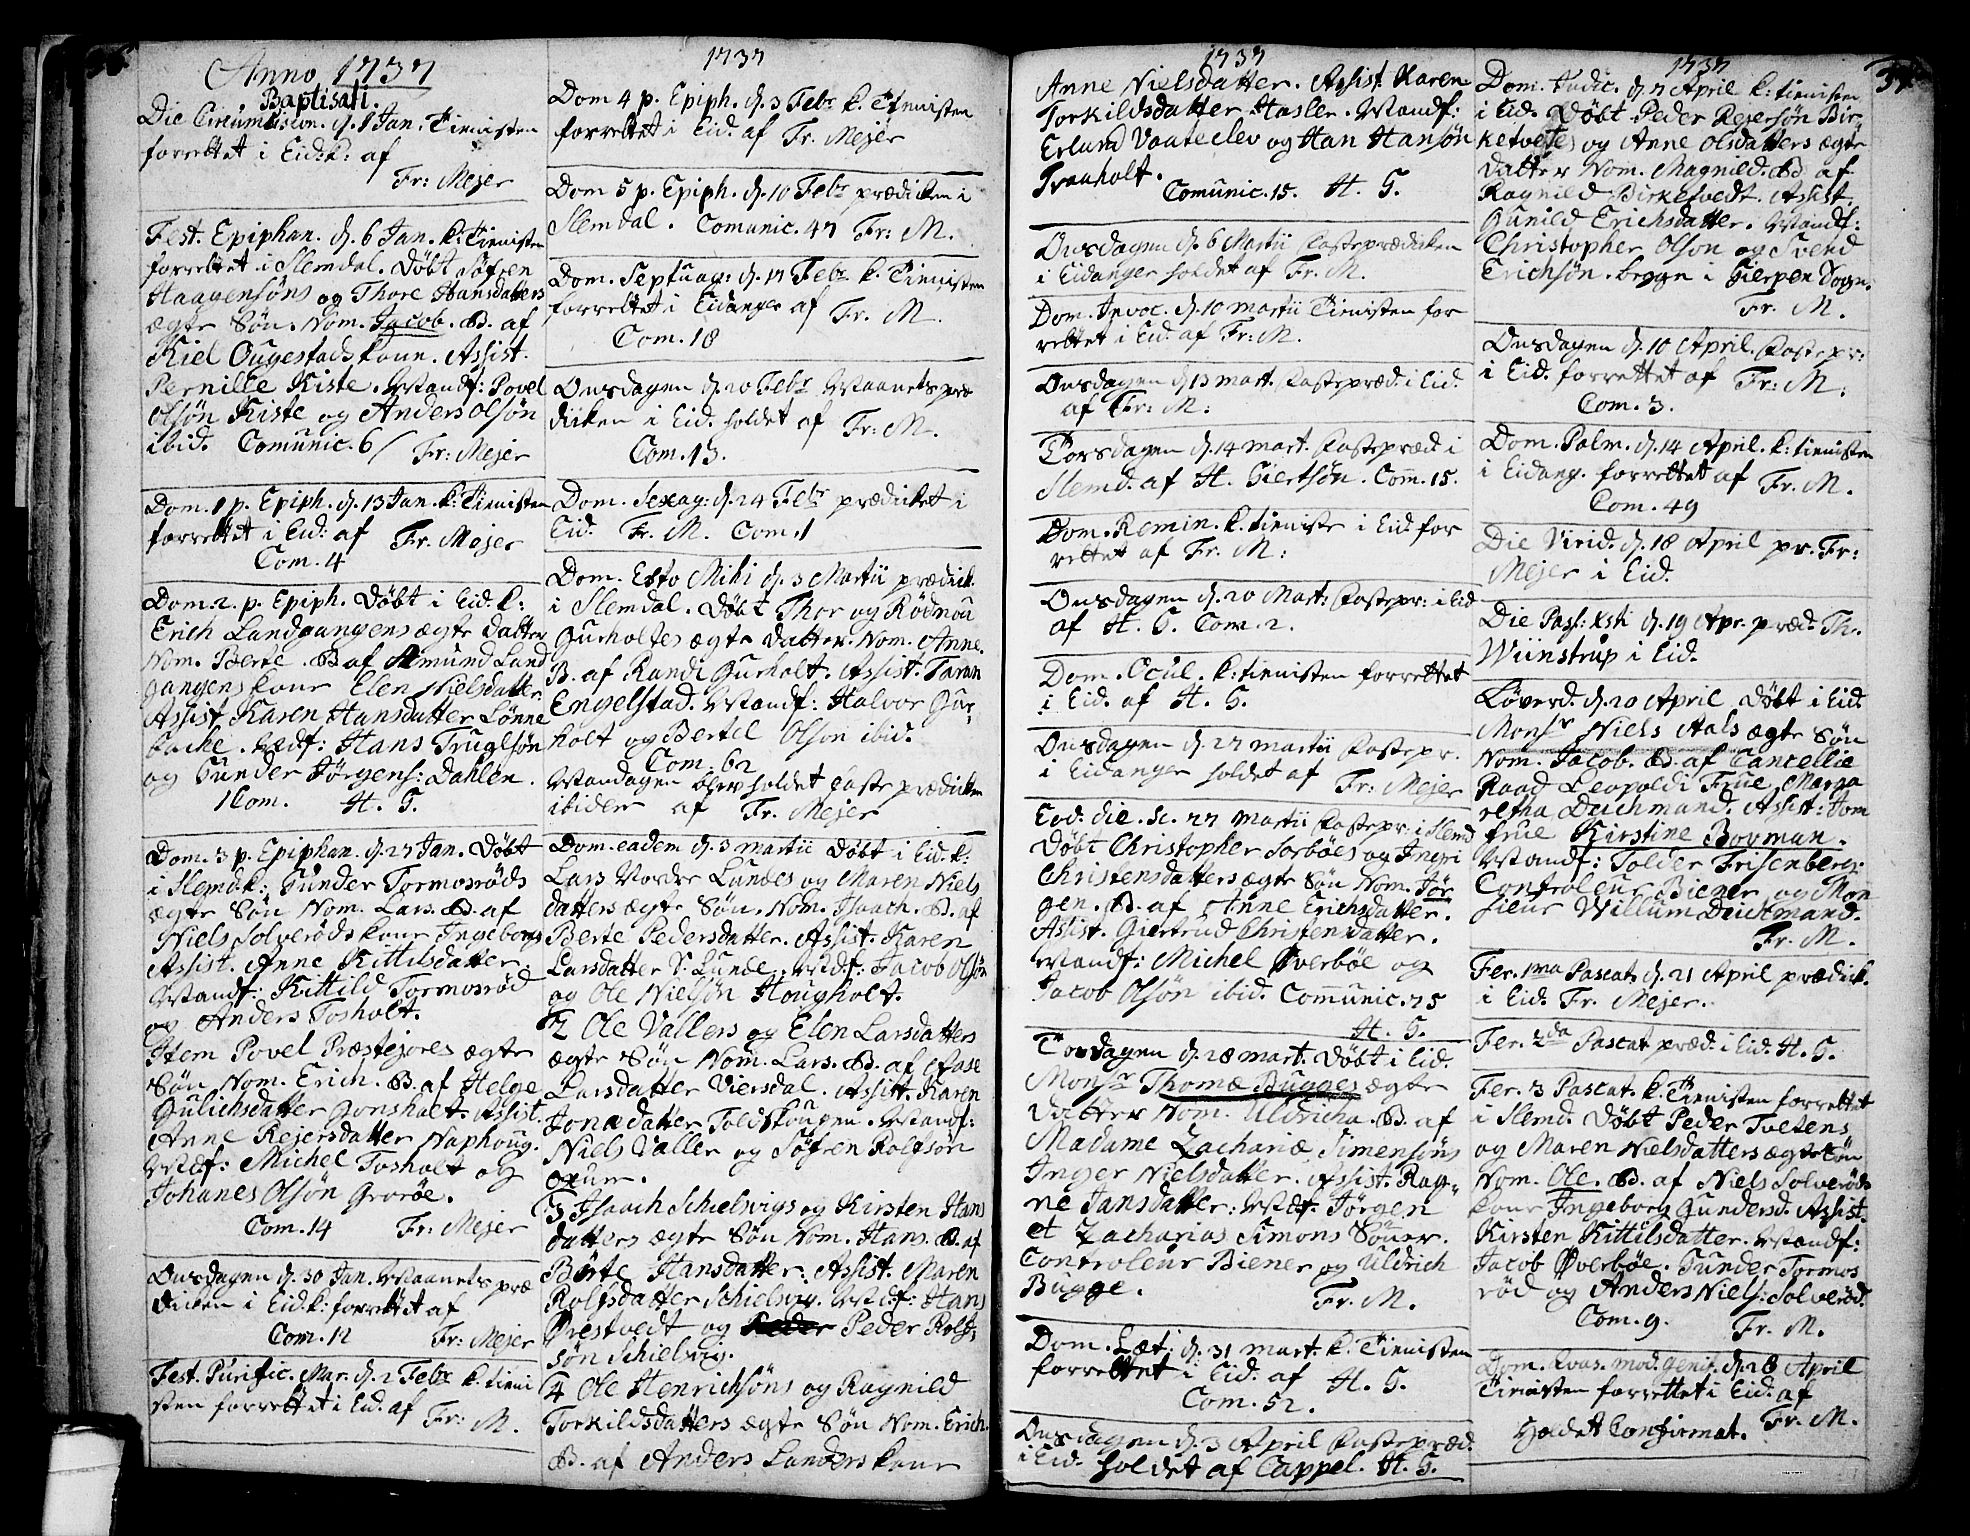 36.
Anno 1737
Baptisati.
Die Circumcision. d. 1 Jan. Tienisten
forrettet i Eid: k: af
Fr: Mejer
Fest. Epiphan. d. 6 Jan. k: Tienisten
forrettet i Slemdal. Døbt Søfren
Haagensøns og Thore Hansdatters
ægte Søn. Nom. Jacob. B. af
Kiel Ougestads kone. Assist.
Pernille Kiste. Vstandf: Povel
Olsøn Kiste og Anders Olsøn
ibid. Comunic. 6/ Fr: Mejer
Dom. 1 p. Epiph. d. 13 Jan. k: Tienisten
forrettet i Eid: af Fr. Mejer
Com. 4
Dom. 2. p. Epiph. Døbt i Eid. k:
Erich Landgangens ægte datter
Nom. Berte. B. af Amund Land
gangens kone Elen Nielsdatter
Assist. Karen Hansdatter Lønne
backe. Vædf: Hans Truglsøn
og Gunder Jørgens: Dahlen.
1 Com. H. G.
Dom. 3 p. Epiphan. d. 27 Jan. Døbt
i Slemd. k: Gunder Tormosrøds
ægte Søn Nom. Lars. B. af
Niels Solverøds kone Ingeborg
Assist. Anne Kittilsdatter.
Vstandf: Kittild Tormosrød
og Anders Tosholt.
Item Povel Præstejores ægte
Søn Nom. Erich. B. af Helge
Gulichsdatter Gonsholt. Assist.
Anne Rejersdatter Naphoug.
Vstdf: Michel Tosholt og
Johanes Olsøn Grorøe.
Com. 14 Fr: Mejer
Onsdagen d. 30 Jan. Maanets præ
diken i Eid. k: forrettet af
Com. 12 Fr: Mejer
Fest. Purific. Mar. d. 2 Febr k: tieni
sten forrettet i Eid. af Fr: M.
1737
Dom 4 p. Epiph. d. 3 Febr. k. Tienisten
forrettet i Eid. af Fr. Mejer
Dom 5 p. Epiph. d. 10 Febr prædiken i
Slemdal. Comunic. 47 Fr: M.
Dom. Septuag: d. 17 Febr k. Tienisten
forrettet i Eidanger af Fr. M.
Com. 18
Onsdagen d. 20 Febr Maanets præ
diken i Eid. holdet af Fr: M.
Com. 13.
Dom. Sexag: d. 24 Febr prædicket i
Eid. Fr. M. Com. 1
Dom. Esto Mihi d. 3 Martii prædick.
i Slemdal. Døbt Thor og Rødnou
Gurholtes ægte datter. Nom. Anne.
B. af Randi Gurholt. Assist. Taran
Engelstad. Vstandf: Halvor Gur,
holt og Bertel Olson ibid.
Com. 62
Mandagen blev holdet faste prædicken
ibidem af Fr. Mejer
Dom. eadem d. 3 martii Døbt i Eid. k:
Lars Nordre Lundes og Maren Niels
datters ægte Søn. Nom. Isaach. B. af
Berte Pedersdatter. Assist. Karen
Larsdatter S. Lunde. Vstd.f: Jacob Olsøn
og Ole Nielsøn Hougholt.
2 Ole Vallers og Elen Larsdatters
ægte Søn Nom. Lars. B. af Aase
Larsdatter Viersdal. Assist. Karen
Jonædatter Toldskougen. Vstandf:
Niels Valler og Søfren Rolfsøn
oxum.
3 Isaach Schielvigs og Kirsten Hans
datters ægte Søn Nom. Hans. B. af
Berte Hansdatter. Assist. Maren
Rolfsdatter Schielvig. Vstd.f: Hans
Ørestvedt og Peder Rolf,
søn Schielvig.
4 Ole Henrichsøns og Ragnild
Torkildsdatters ægte Søn Nom. Erich.
B. af Anders Lunders kone
1737
Anne Nielsdatter. Assist. Karen
Torkildsdatter Hasler. Vstandf:
Erlund Vaateclev og Han Hansøn
Tranholt.
Comunic. 15. H. G.
Onsdagen d. 6 Martii Fasteprædicken
i Eidanger holdet af Fr. M.
Dom. Invoc. d. 10 martii Tienisten for
rettet i Eid. af Fr: M.
Onsdagen d. 13 mart. Fastepræd. i Eid.
af Fr: M:
Torsdagen d. 14 mart. Fastepræd: i
Slemd. af H. Giertsøn. Com. 15.
Dom. Remin. k. tieniste i Eid. for
rettet af Fr. M:
Onsdagen d. 20 Mart: Fastepr: i Eid
af H. G. Com. 2.
Dom. Ocul. k: tienisten forrettet
i Eid. af H. G.
Onsdagen d. 27 martii Fastepr.
i Eidanger holdet af Fr: Mejer
Eod. die. sc. 27 martii Fastepr: i Slemd
Døbt Christopher Sorbøes og Ingri
Christensdatters ægte Søn Nom. Jør
gen. B. af Anne Erichsdatter.
Assist. Giertrud Christensdatter.
Vstandf: Michel Øverbøe og
Jacob Olsøn ibid. Comunic. 75
H. G.
Torsdagen d. 28 mart. Døbt i Eid.
Monsr Thomæ Bugges ægte
datter Nom. Uldricha. B. af
Madame Zachariæ Simensøns
Inger Nielsdatter. Assist. Rag-
ne Jansdatter: Vstdf: Jørgen
et Zacharias Simons Søner.
Controleur Biener og Uldrich
Bugge. Fr. M.
Dom. Læt: d. 31 mart. k. Tienisten
forrettet i Eid. af H. G.
Com. 52.
Onsdagen d. 3 April Fastepræd.
i Eid. holdet af Cappel. H. G.
1737
37.
Dom. Judic. d. 7 April k: tienisten
i Eid. Døbt Peder Rejersøn Bir-
ketvetes og Anne Olsdatters ægte
datter Nom. Magnild. B. af
Ragnild Birketvedt. Assist.
Gunild Erichsdatter. Vstandf:
Christopher Olson og Svend
Erichsøn. begge i Gierpen Sogn.
Fr. M.
Onsdagen d. 10 April. Fastepr:
i Eid. forrettet af Fr: M:
Com. 3.
Dom. Palm. d. 14 April. k: tienisten
i Eidang. forrettet af Fr. M.
Com. 49
Die Virid. d. 18 April pr. Fr:
Mejer i Eid.
Die Pass: Xsti d. 19 Apr. præd. Th.
Wiinstrup i Eid.
Løverd. d. 20 April Døbt i Eid.
Monsr Niels Aals ægte Søn
Nom. Jacob. B. af Cancellie
Raad Leopoldi Frue Marga
retha Deichmand. Assist: Jom
frue Kirstine Borman.
Vstandf: Tolder Frisenberg.
Controleur Biener og Mon
sieur Willum Deichmand.
Fr. M.
Fer. 1ma Pascat. d. 21 April prædick.
i Eid. Fr. Mejer.
Fer. 2da Pascat præd. i Eid. H. G.
Fer. 3 Pascat. k. Tienisten forrettet
i Slemd. Døbt Peder Tvetens
og Maren Nielsdatters ægte Søn
Nom. Ole. B. af Niels Solverøds
kone Ingeborg Gundersd. Assist.
Kirsten Kittilsdatter. Vstandf:
Jacob Øverbøe. Gunder Tormos
rød og Anders Niels: Solverød.
Com. 9. Fr. M.
Dom. Qvas. mod. genit. d. 28 April
Tienisten forrettet i Eid. af
Holdet Confirmat. Fr. M.